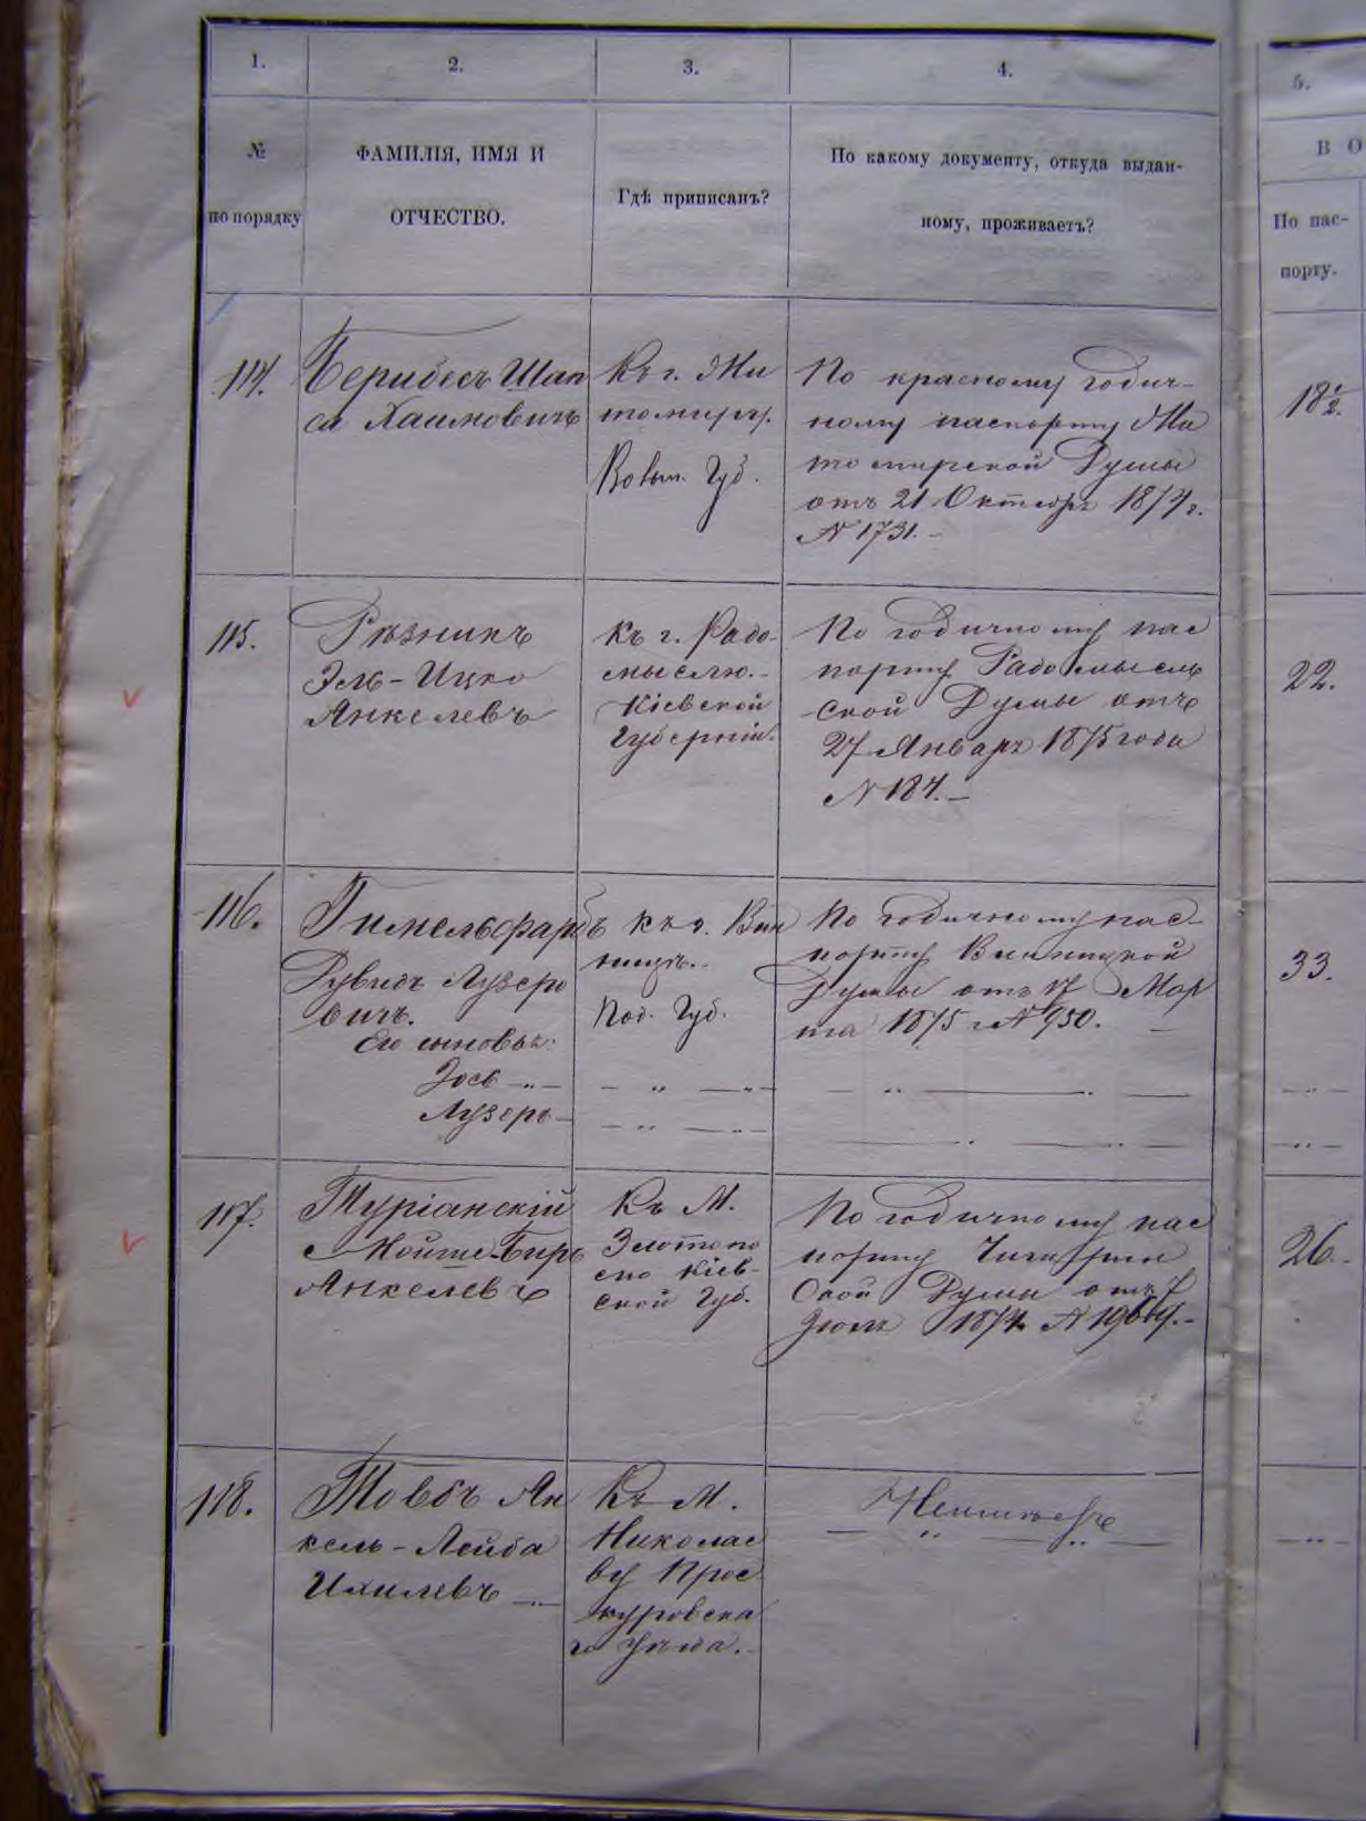 1.
2.
3.
4.
5.
№
по порядку
ФАМИЛІЯ, ИМЯ И
ОТЧЕСТВО.
Гдѣ приписанъ?
По какому документу, откуда выдан-
ному, проживаетъ?
В О
По пас-
порту.
114.
Берибесъ Шап
са Хаимовичъ
Къ г. Жи
томиру.
Волын. Губ.
По красному годич-
ному паспорту Жи
томирской Думы
отъ 21 Октября 1874 г.
№ 1731.-
18 1/2.
115.
Рѣзникъ
Эль-Ицко
Янкелевъ
Къ г. Радо-
мыслю.-
Кіевской
Губерніи.
По годичному пас
порту Радомысль
ской Думы отъ
27 Января 1875 года
№ 184.-
22.
116.
Гимельфарбъ
Рувидъ Лузеро
вичъ.
Его сыновья:
Зось -"-
Лузеръ -
къ г. Вин
ницѣ.-
Под. Губ.
По годичному пас-
порту Винницкой
Думы отъ 17 Мар
та 1875 г № 950. -
33.
117.
Туріанскій
Мойше-Беръ
Янкелевъ
Къ М.
Златопо
лю Кіев-
ской Губ.
По годичному пас
порту Чигирин
ской Думы отъ 7
Іюля 1874 №
26.-
118.
Товбъ Ян
кель-Лейба
Ихилевъ -"-
Къ М.
Николае
ву Прос
куровска
го уѣзда.-
Неимѣетъ